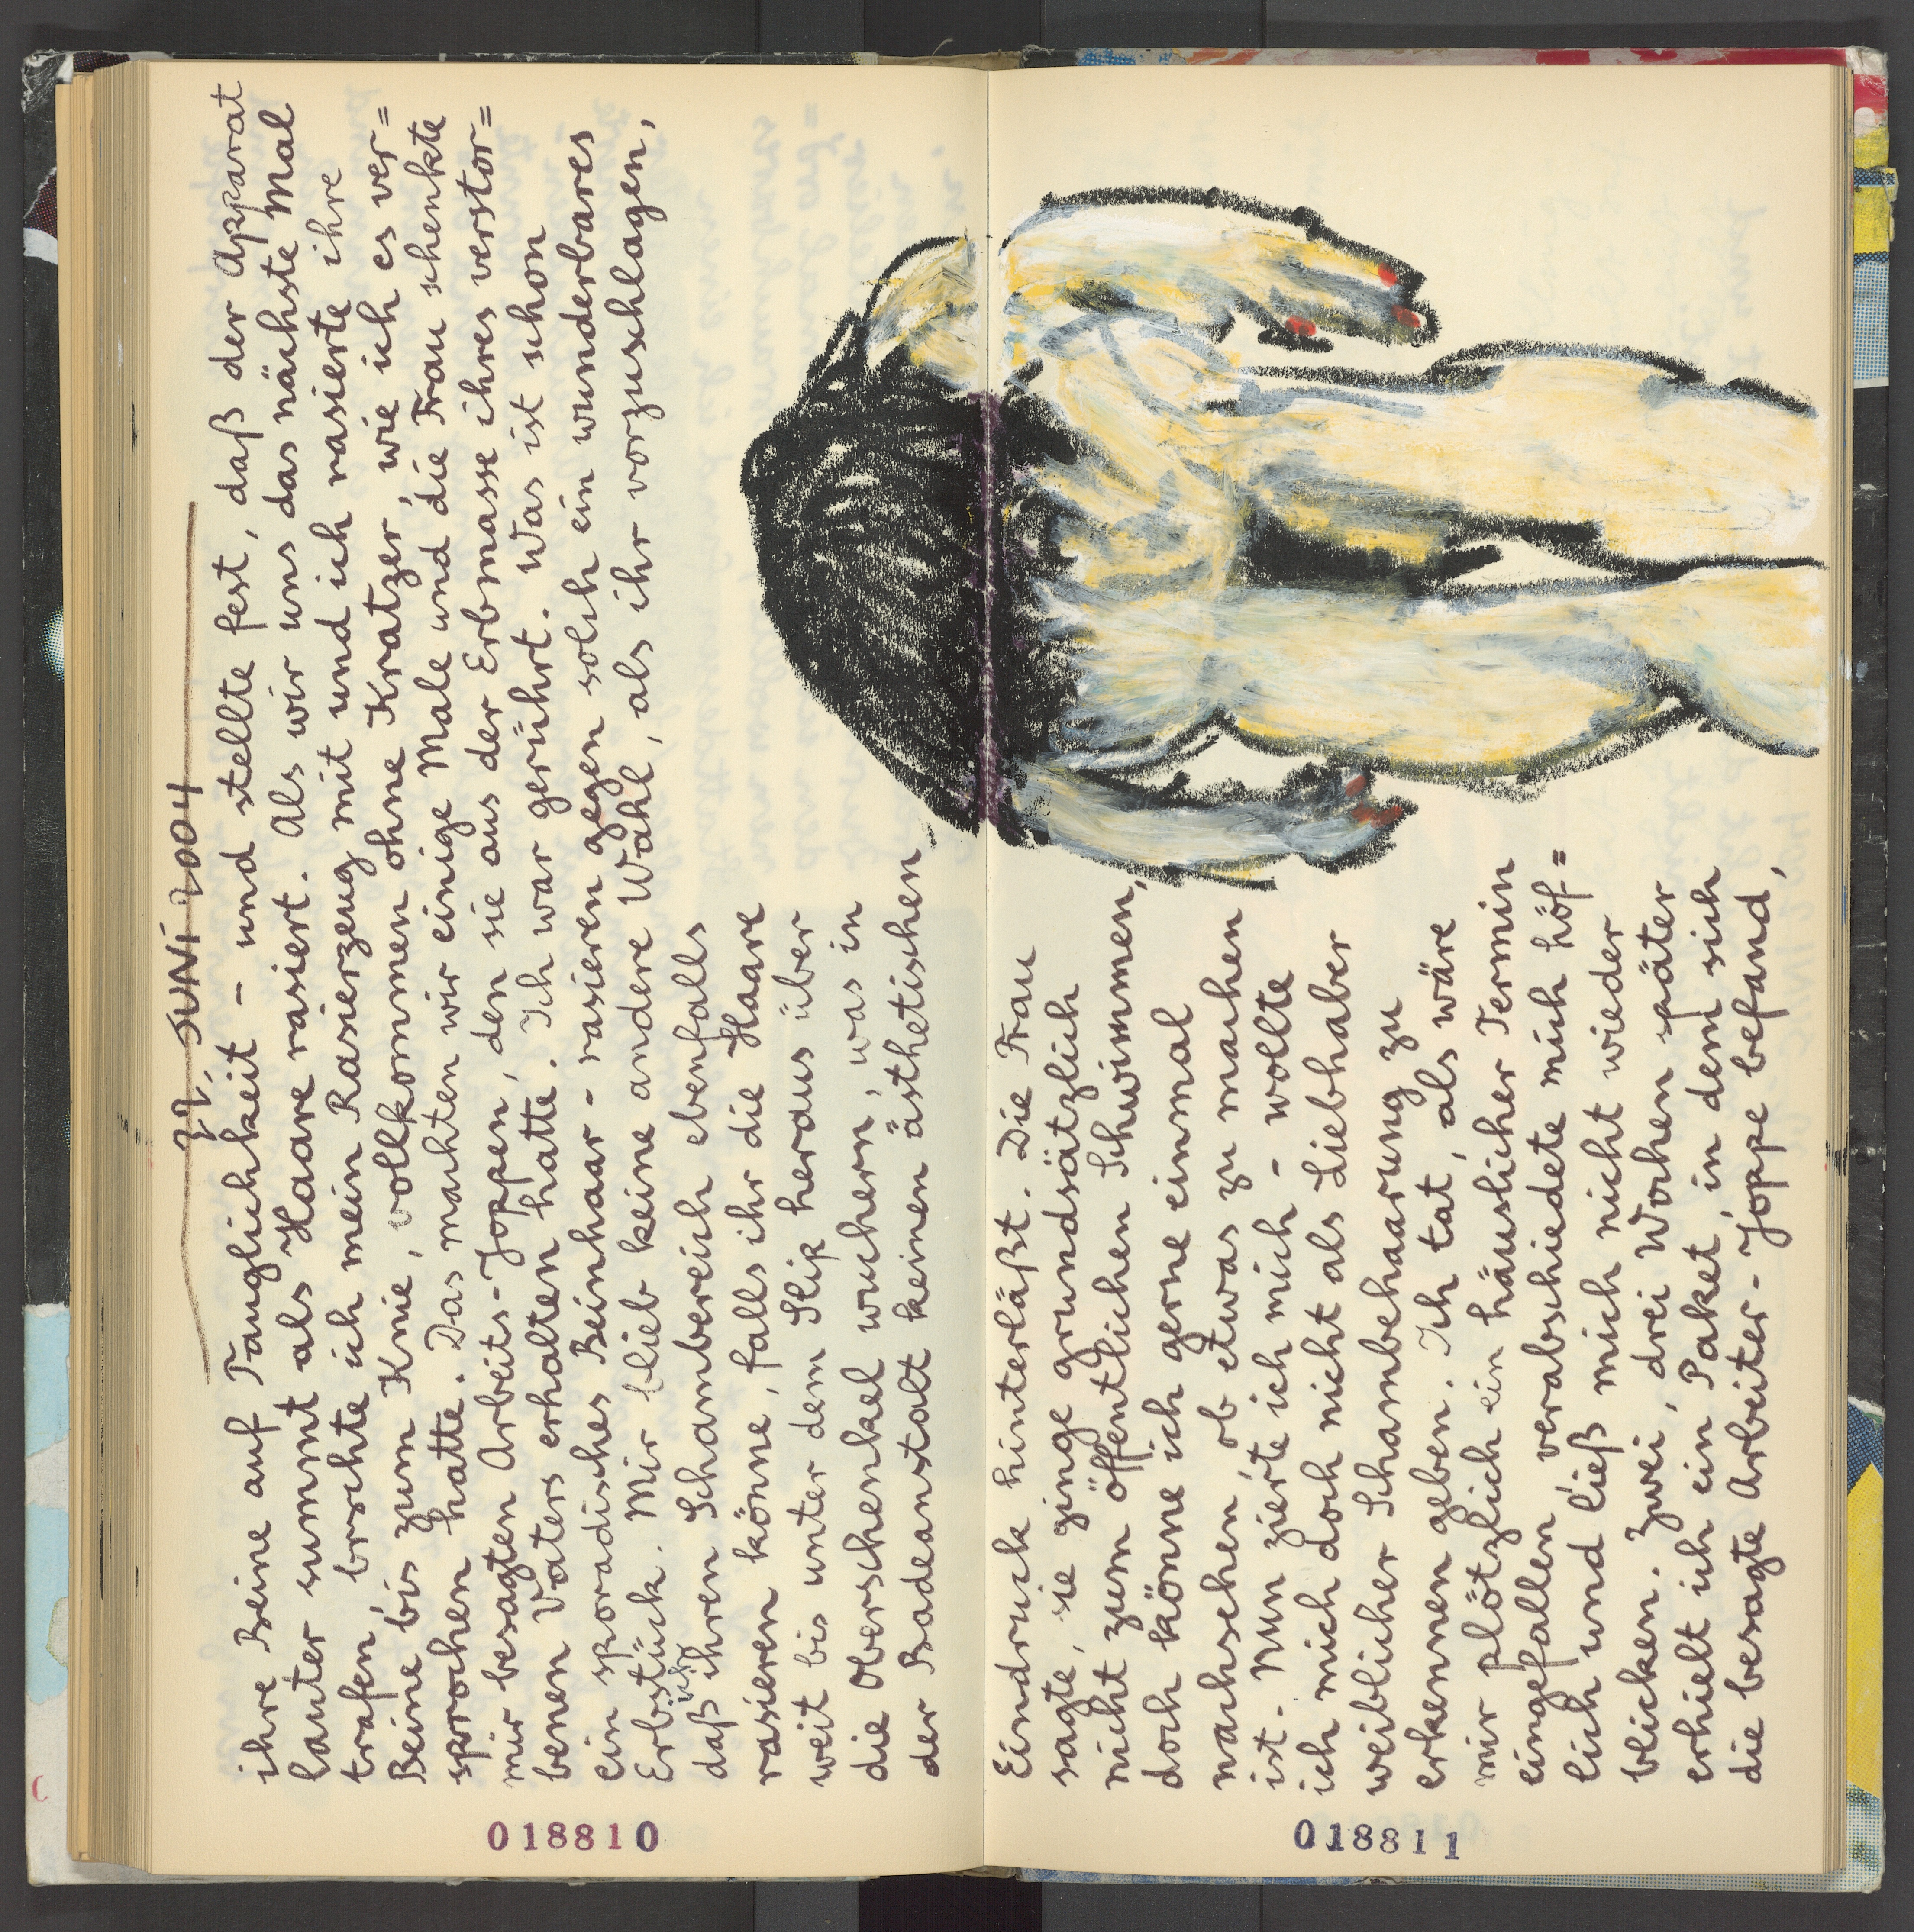 22. JUNI 2004
ihre Beine auf Tauglichkeit - und stellte fest, daß der Apparat
lauter summt als Haare rasiert. Als wir uns das nächste Mal
trafen, brachte ich mein Rasierzeug mit und ich rasierte ihre
Beine bis zum Knie, vollkommen ohne Kratzer, wie ich es ver=
sprochen hatte. Das machten wir einige Male und die Frau schenkte
mir besagten Arbeits-Joppen, den sie aus der Erbmasse ihres verstor=
benen Vaters erhalten hatte. Ich war gerührt. Was ist schon
ein sporadisches Beinhaar-rasieren gegen solch ein wunderbares
Erbstück. Mir blieb keine andere Wahl, als ihr vorzuschlagen,
daß ich ihren Schambereich ebenfalls
rasieren könne, falls ihr die Haare
weit bis unter dem Slip heraus über
die Oberschenkel wuchern, was in
der Badeanstalt keinen ästhetischen
Eindruck hinterläßt. Die Frau
sagte, sie ginge grundsätzlich
nicht zum öffentlichen Schwimmen,
doch könne ich gerne einmal
nachsehen, ob etwas zu machen
ist. Nun zierte ich mich - wollte
ich mich doch nicht als Liebhaber
weiblicher Schambehaarung zu
erkennen geben. Ich tat, als wäre
mir plötzlich ein häuslicher Termin
eingefallen, verabschiedete mich höf=
lich und ließ mich nicht wieder
blicken. Zwei, drei Wochen später
erhielt ich ein Paket, in dem sich
die besagte Arbeiter-Joppe befand,
018810
018811